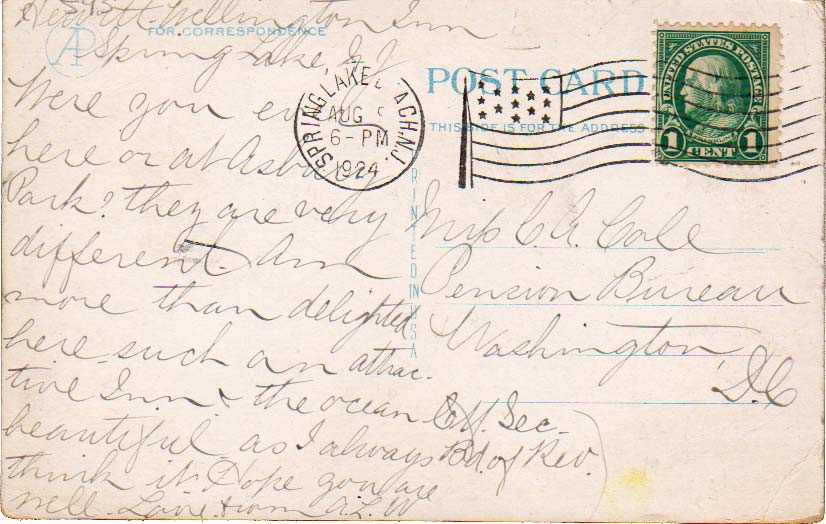 Hewitt-Wellington Inn
AP
FOR CORRESPONDENCE
Spring Lake, N J
Were you ev
here or at Asbury
Park? they are very
different. Am
more than delighted
here such an attrac-
tive Inn & the ocean
beautiful as I always
think it. Hope you are
well. Love from A.L.W
SPRING LAKE BEACH, N.J.
AUG
6-PM
1924
POST CARD
THIS SIDE IS FOR THE ADDRESS
UNITED STATES POSTAGE
FRANKLIN
1 CENT 1
PRINTED IN USA
Miss C. A. Cole
Pension Bureau
Washington,
D.C
Off. Sec.
Bd. of Rev.